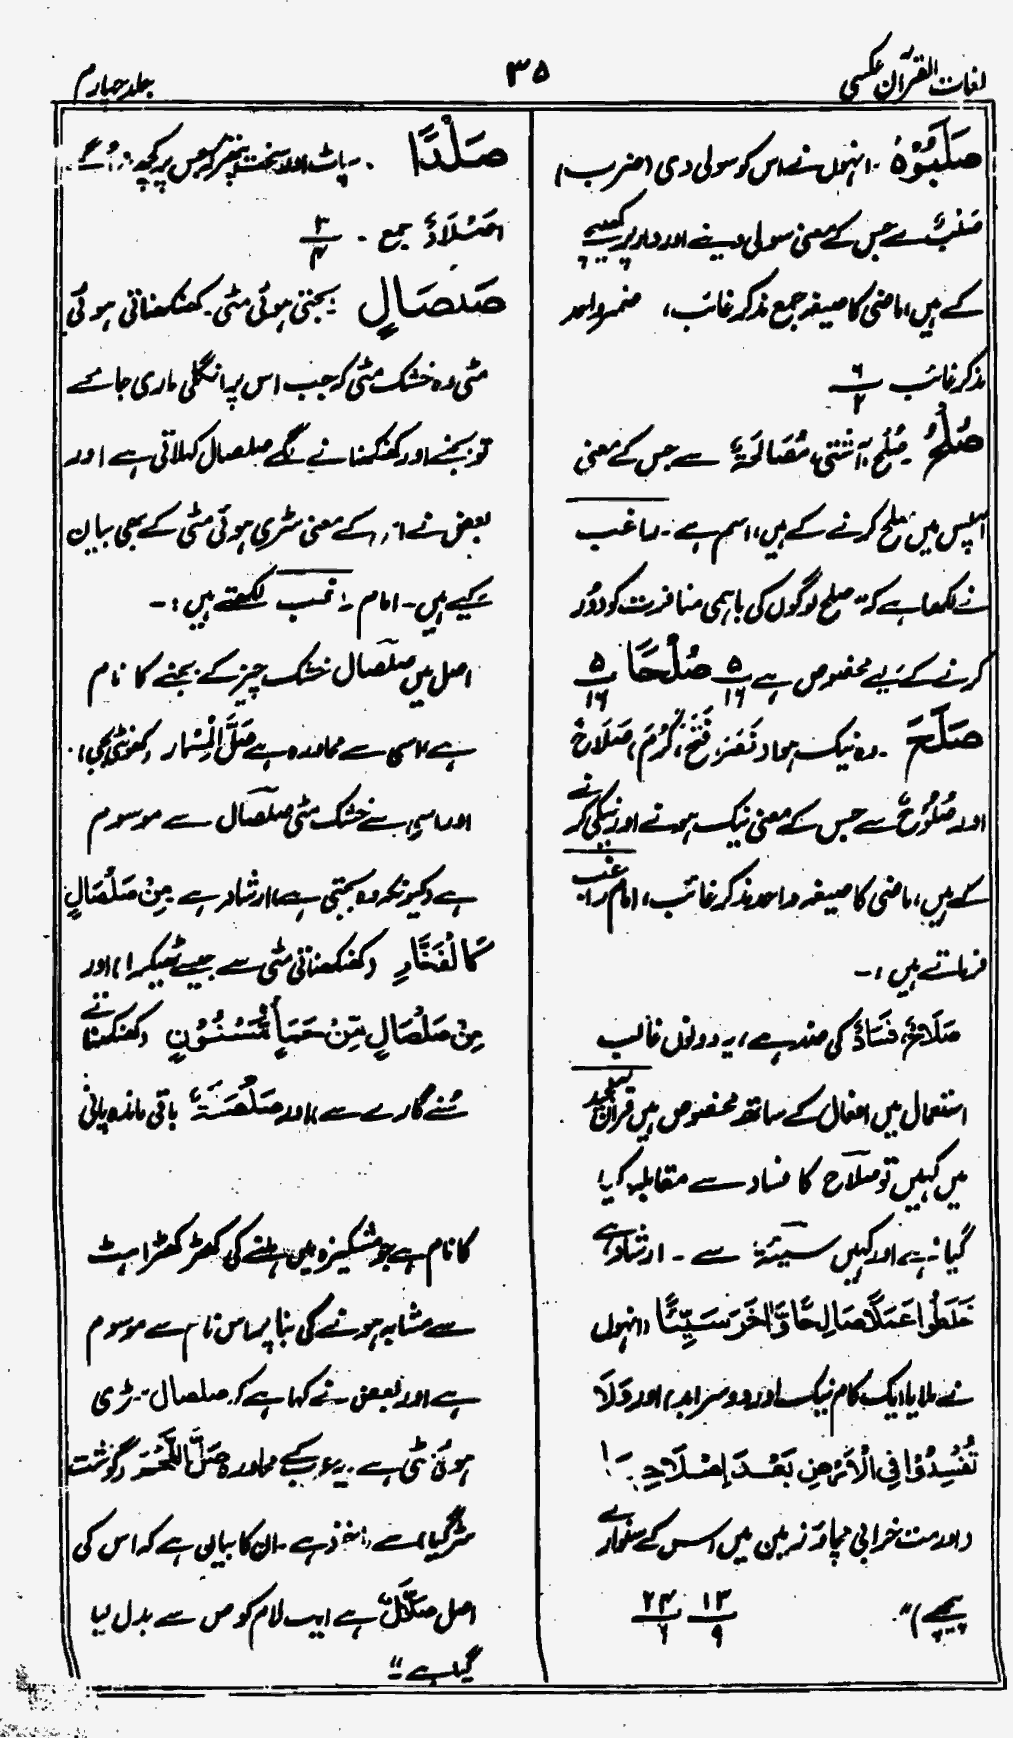 لغات القرآن عکسی
۳۵
جلد چہارم
صَلَبُوْہُ ۔ انہوں نے اس کو سولی دی (ضرب)
صَلْبٌ سے جس کے معنی سولی دینے اور دار پر کھینچنے
کے ہیں، ماضی کا صیغہ جمع مذکر غائب، ضمیر واحد
مذکر غائب ۶/۲
صُلْحٌ ۔ صُلْح، آشتی، مُصَالَحَۃٌ سے جس کے معنی
آپس میں صلح کرنے کے ہیں، اسم ہے ۔ راغب
نے لکھا ہے کہ "صلح لوگوں کی باہمی منافرت کو دور
کرنے کے لیے مخصوص ہے ۵/۱۶ صُلْحًا ۵/۱۶
صَلَحَ ۔ وہ نیک ہوا، نَصَرَ، فَتَحَ، کَرُمَ، صَلَاحٌ
اور صُلُوْحٌ سے جس کے معنی نیک ہونے اور نیکی کرنے
کے ہیں، ماضی کا صیغہ واحد مذکر غائب، امام راغب
فرماتے ہیں :۔
صَلَاحٌ، فَسَادٌ کی ضد ہے، یہ دونوں غالب
استعمال میں افعال کے ساتھ مخصوص ہیں قرآن مجید
میں کہیں تو صلاح کا فساد سے مقابلہ کیا
گیا ہے اور کہیں سیئۃ سے ۔ ارشاد ہے
خَلَطُوْا عَمَلًا صَالِحًا وَّاٰخَرَ سَیِّئًا (انہوں
نے ملایا ایک کام نیک اور دوسرا بد) اور وَلَا
تُفْسِدُوْا فِی الْاَرْضِ بَعْدَ اِصْلَاحِہَا
(اور مت خرابی مچاؤ زمین میں اس کے سنوارے
پیچھے)"۔ ۱۳/۹ ۲۴/۶
صَلْدًا ۔ سپاٹ اور سخت پتھر کہ جس پر کچھ نہ اُگے ۔
اَصْلَادٌ جمع ۔ ۳/۴
صَلْصَالٍ : بجتی ہوئی مٹی ۔ کھنکھناتی ہوئی
مٹی وہ خشک مٹی کہ جب اس پر انگلی ماری جائے
تو بجنے اور کھنکھنانے لگے صلصال کہلاتی ہے اور
بعض نے اس کے معنی سڑی ہوئی مٹی کے بھی بیان
کیے ہیں ۔ امام راغب لکھتے ہیں :۔
اصل میں صلصال خشک چیز کے بجنے کا نام
ہے اسی سے محاورہ ہے صَلَّ الْمِسْمَار (کھونٹی بجی)،
اور اسی بنے خشک مٹی صلصال سے موسوم
ہے (کیونکہ وہ بجتی ہے) ارشاد ہے مِنْ صَلْصَالٍ
کَالْفَخَّارِ (کھنکھناتی مٹی سے جیسے ٹھیکرا) اور
مِنْ صَلْصَالٍ مِّنْ حَمَاٍ مَّسْنُوْنٍ (کھنکھناتے
سَنے گارے سے) اور صَلْصَلَۃٌ باقی ماندہ پانی
کا نام ہے جو مشکیزہ میں ہلنے کی کھڑکھڑاہٹ
سے مشابہ ہونے کی بنا پر اس نام سے موسوم
ہے اور بعض نے کہا ہے کہ صلصال سڑی
ہوئی مٹی ہے ۔ یہ عرب کے محاورہ صَلَّ اللَّحْمُ (گوشت
سڑ گیا) سے ماخوذ ہے ۔ ان کا بیان ہے کہ اس کی
اصل صَلَّالٌ ہے ایک لام کو ص سے بدل لیا
گیا ہے"